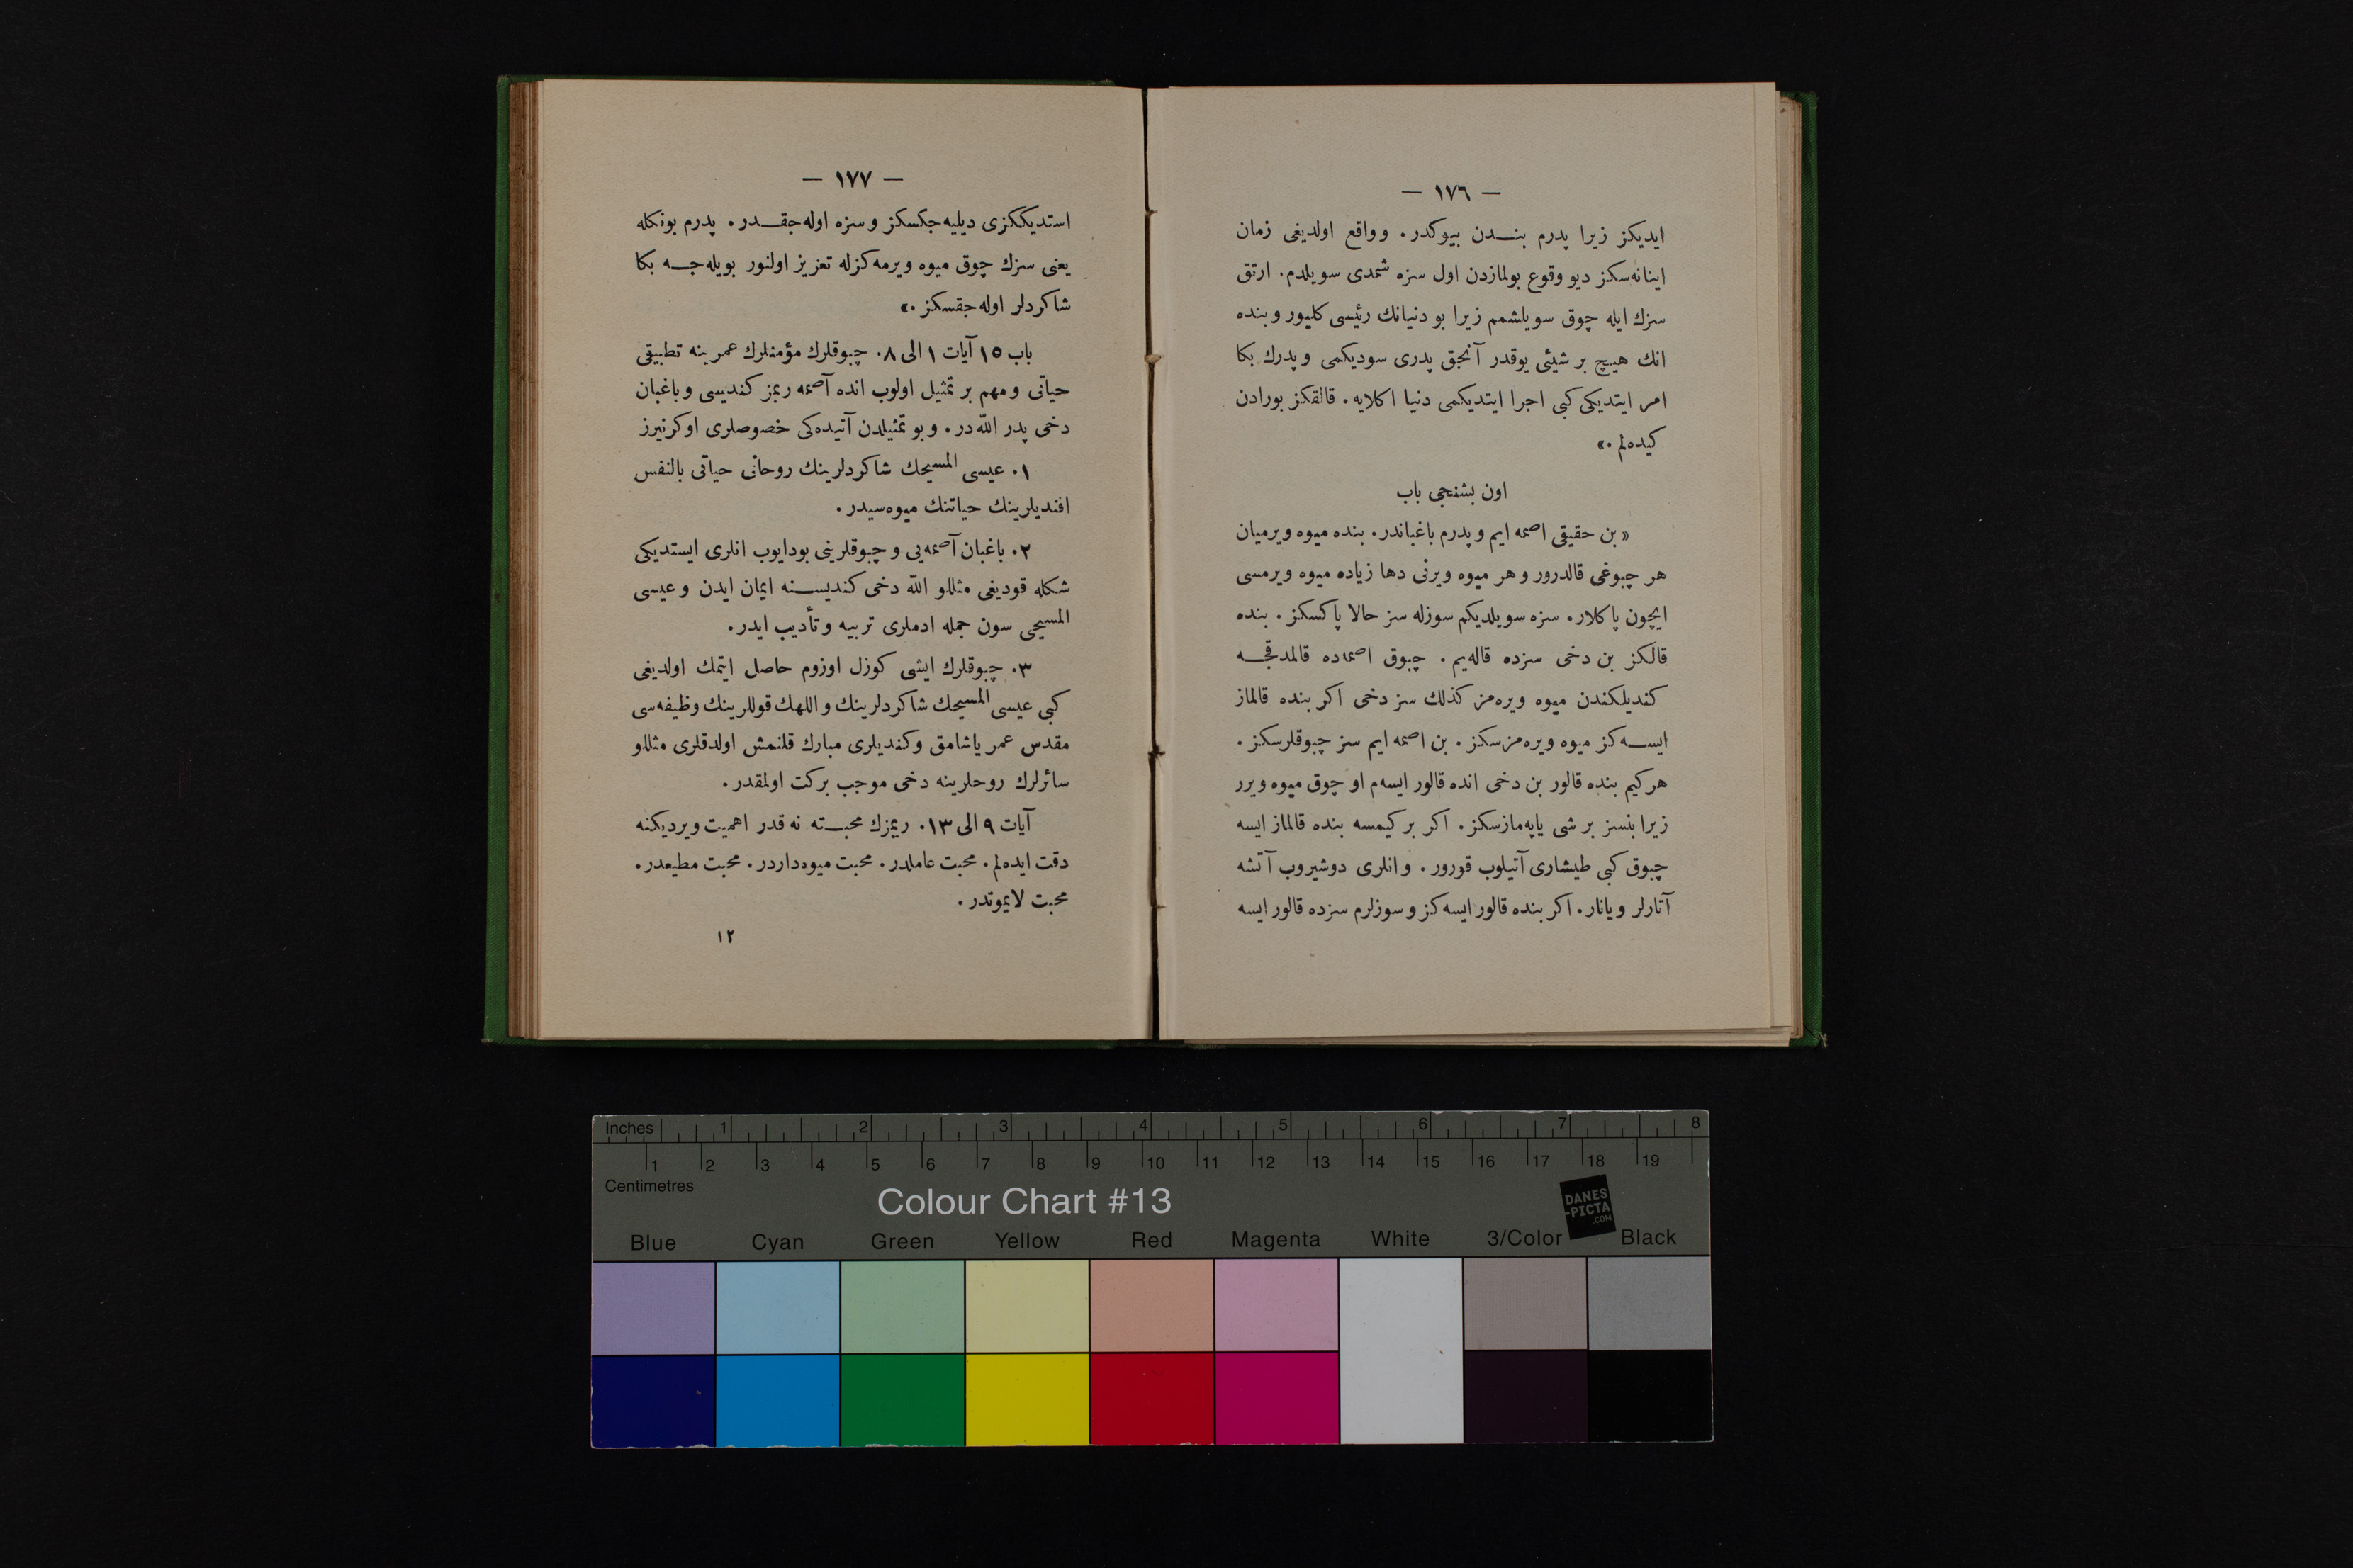 — ١٧٦ —
ایدیكز زیرا پدرم بنـــدن بیوكدر. و واقع اولدیغی زمان
اینانه‌سكز دیو وقوع بولمازدن اول سزه شمدی سویلدم. ارتق
سزك ایله چوق سویلشمم زیرا بو دنیانك رئیسی كلیور و بنده
انك هیچ بر شیئی یوقدر آنجق پدری سودیكمی و پدرك بكا
امر ایتدیكی كبی اجرا ایتدیكمی دنیا اكلایه. قالقكز بورادن
كیده‌لم.»
اون بشنجی باب
« بن حقیقی اصمه ایم و پدرم باغباندر. بنده میوه ویرمیان
هر چبوغی قالدرور و هر میوه ویرنی دها زیاده میوه ویرمسی
ایچون پاكلار. سزه سویلدیكم سوزله سز حالا پاكسكز. بنده
قالكز بن دخی سزده قاله‌یم. چبوق اصماده قالمدقجـــه
كندیلكندن میوه ویره‌مز كذلك سز دخی اكر بنده قالماز
ایســـه‌كز میوه ویره‌مزسكز. بن اصمه ایم سز چبوقلرسكز.
هركیم بنده قالور بن دخی انده قالور ایسه‌م او چوق میوه ویرر
زیرا بنسز بر شی یاپه‌مازسكز. اكر بر كیمسه بنده قالماز ایسه
چبوق كبی طیشاری آتیلوب قورور. و انلری دوشیروب آتشه
آتارلر و یانار. اكر بنده قالور ایسه‌كز و سوزلرم سزده قالور ایسه
— ١٧٧ —
استدیككزی دیلیه‌جكسكز و سزه اوله‌جقـــدر. پدرم بونكله
یعنی سزك چوق میوه ویرمه‌كزله تعزیز اولنور بویله‌جـــه بكا
شاكردلر اوله‌جقسكز.»
باب ١٥ آیات ١ الی ٨. چبوقلرك مؤمنلرك عمرینه تطبیقی
حیاتی و مهم بر تمثیل اولوب انده آصمه ربمز كندیسی و باغبان
دخی پدر اللّه‌در. و بو تمثیلدن آتیده‌كی خصوصلری اوكرنیرز
١. عیسی المسیحك شاكردلرینك روحانی حیاتی بالنفس
افندیلرینك حیاتنك میوه‌سیدر.
٢. باغبان آصمه‌یی و چبوقلرینی بودایوب انلری ایستدیكی
شكله قودیغی مثللو اللّه دخی كندیســـنه ایمان ایدن و عیسی
المسیحی سون جمله ادملری تربیه و تأدیب ایدر.
٣. چبوقلرك ایشی كوزل اوزوم حاصل ایتمك اولدیغی
كبی عیسی المسیحك شاكردلرینك و اللهك قوللرینك وظیفه‌سی
مقدس عمر یاشامق و كندیلری مبارك قلنمش اولدقلری مثللو
سائرلرك روحلرینه دخی موجب بركت اولمقدر.
آیات ٩ الی ١٣. ربمزك محبـــته نه قدر اهمیت ویردیكنه
دقت ایده‌لم. محبت عاملدر. محبت میوه‌داردر. محبت مطیعدر.
محبت لایموتدر.
١٢
Inches 1 2 3 4 5 6 7 8
1 2 3 4 5 6 7 8 9 10 11 12 13 14 15 16 17 18 19
Centimetres
Colour Chart #13
DANES
-PICTA
.COM
Blue Cyan Green Yellow Red Magenta White 3/Color Black